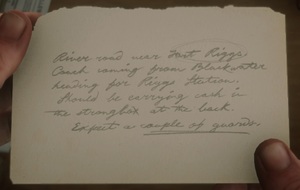 River road near Fort Riggs.
Coach coming from Blackwater
heading for Riggs Station.
Should be carrying cash in
the strongbox at the back.
Expect a couple of guards.